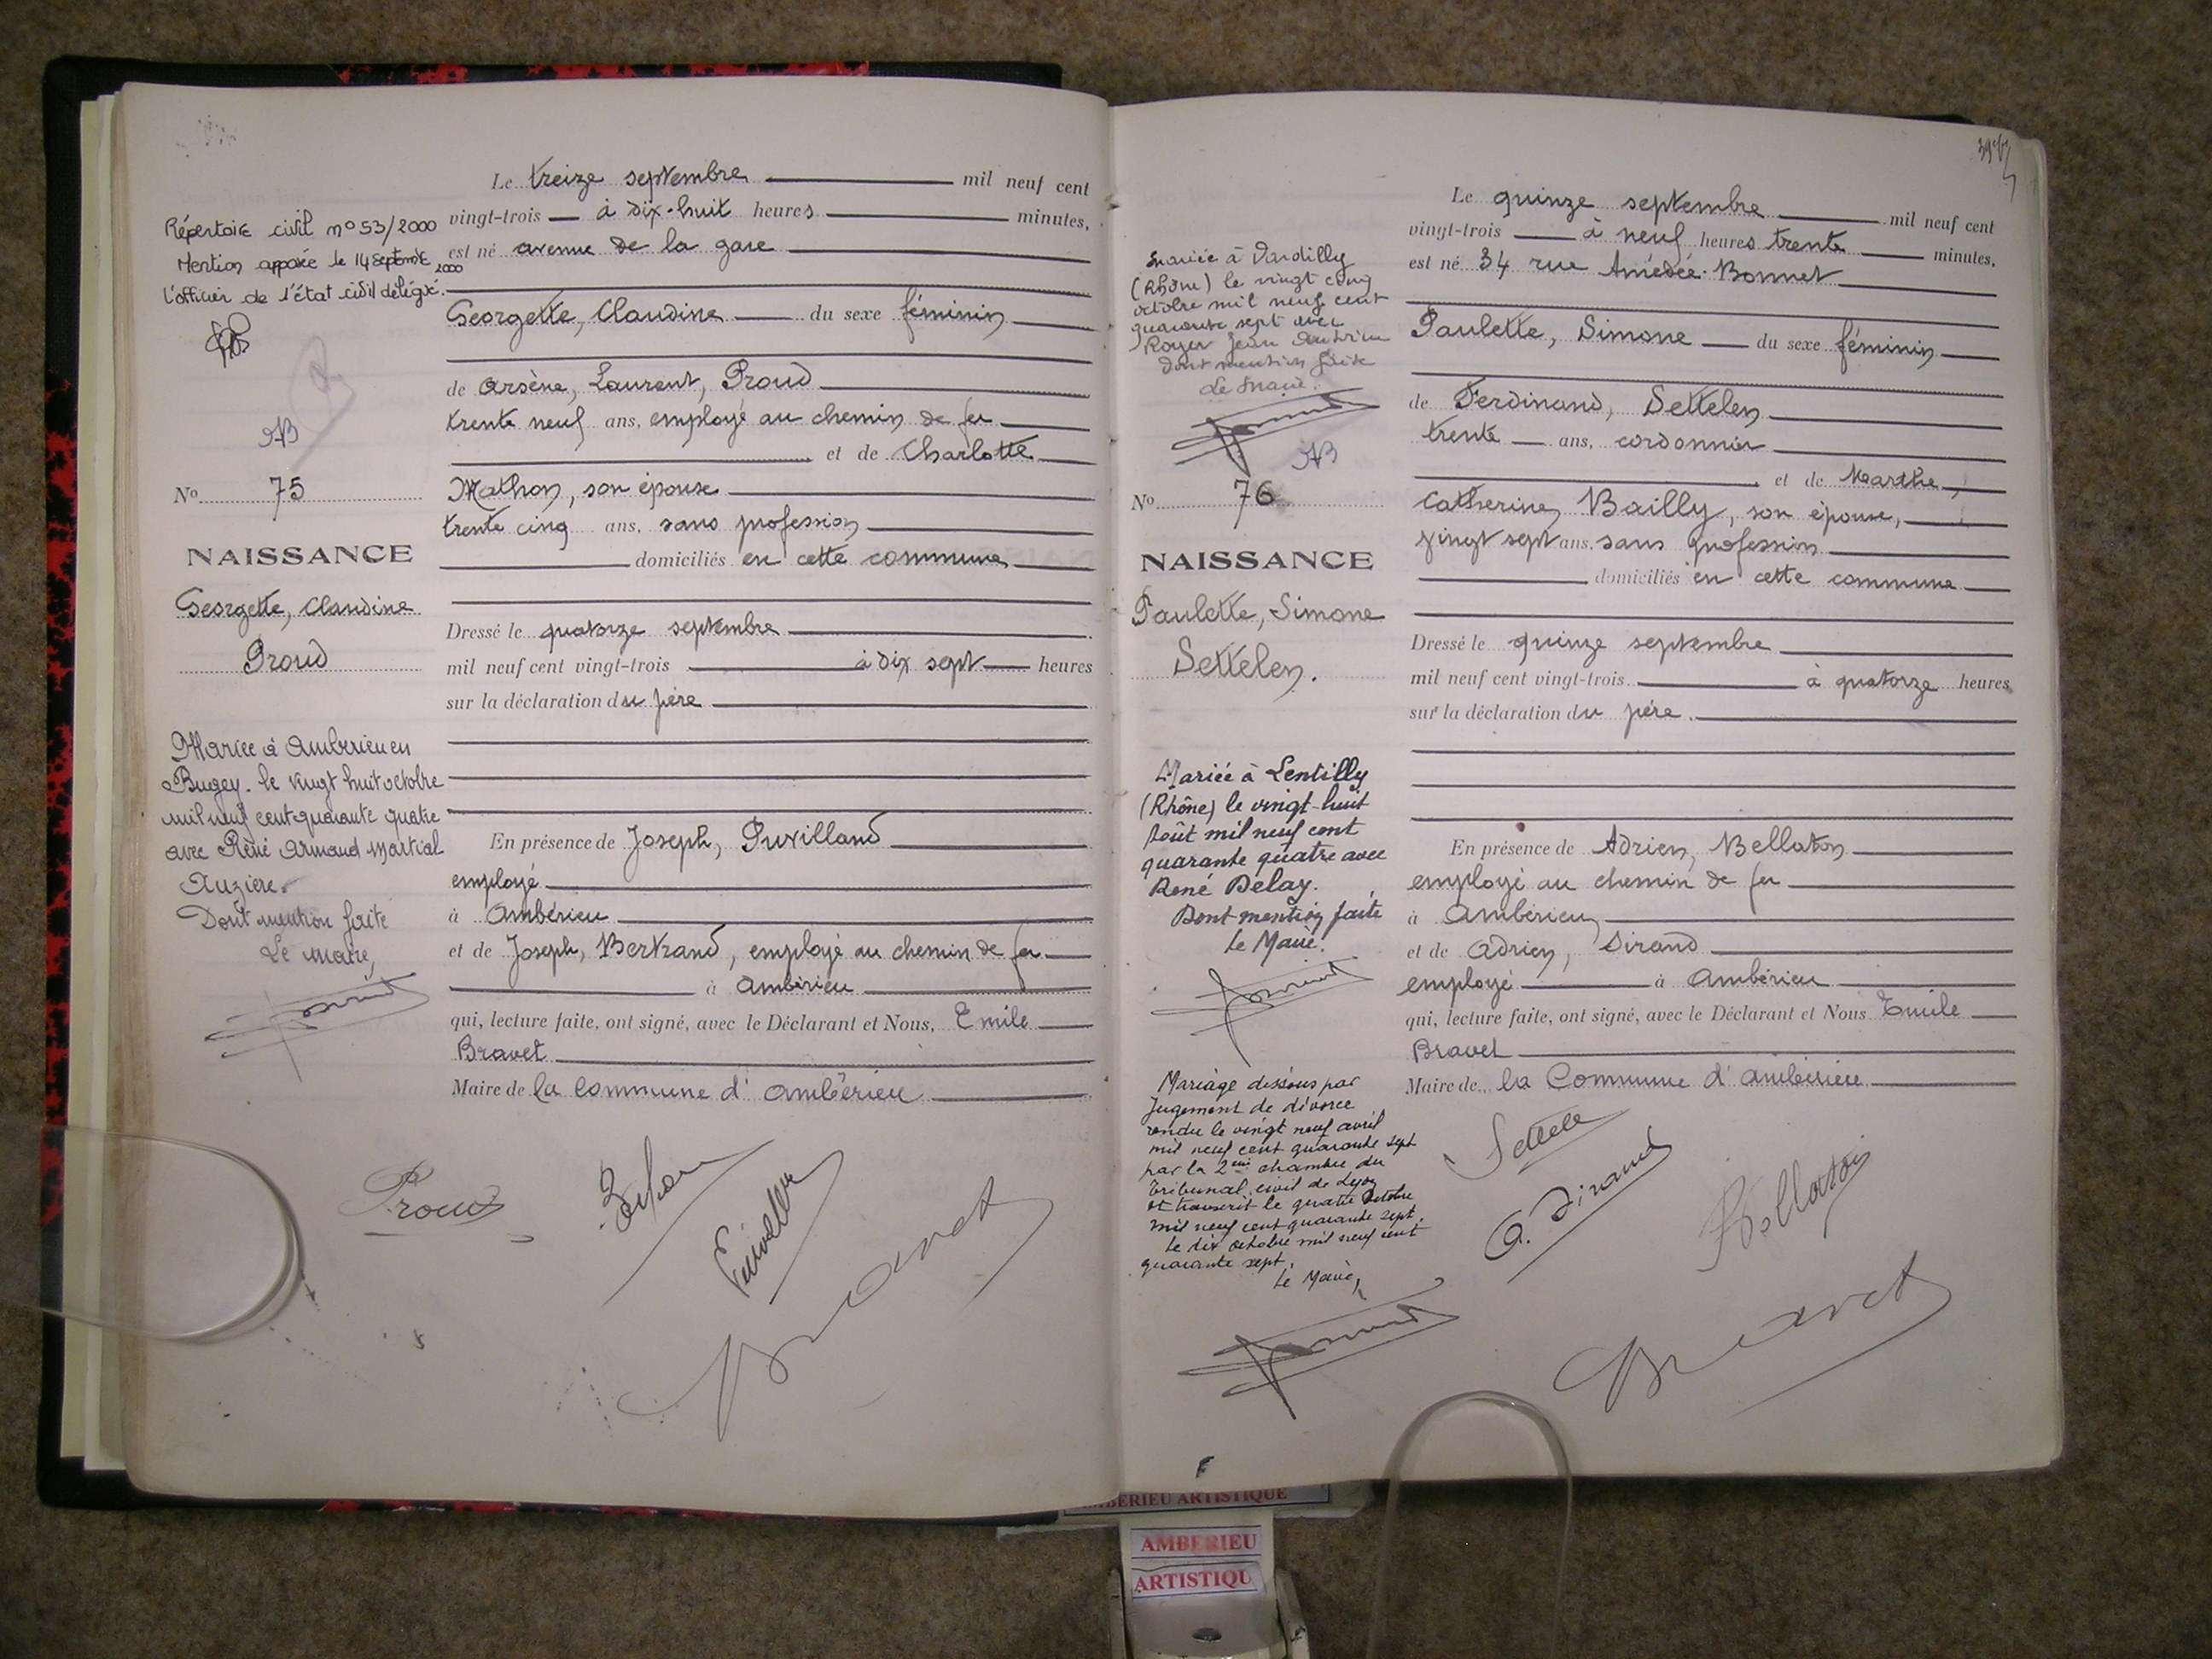 Répertoire civil no 53/2000
Mention apposée le 14 septembre
2000
L'officier de l'état civil délégué.
NB
No 75
NAISSANCE
Georgette, Claudine
Proud
Mariée à Ambérieu en
Bugey. le vingt huit octobre
mil neuf cent quarante quatre
avec Réné Armand Martial
Auzière.
Dont mention faite
Le maire,
Le treize septembre mil neuf cent
vingt-trois à dix-huit heures minutes,
est né avenue de la gare
Georgette, Claudine du sexe féminin
de Arsène, Laurent, Proud
trente neuf ans, employé au chemin de fer
et de Charlotte
Mathon, son épouse
trente cinq ans, sans profession
domiciliés en cette commune
Dressé le quatorze septembre
mil neuf cent vingt-trois à dix sept heures
sur la déclaration du père
En présence de Joseph, Puvilland
employé
à Ambérieu
et de Joseph, Bertrand, employé au chemin de fer
à Ambérieu
qui, lecture faite, ont signé, avec le Déclarant et Nous, Emile
Bravet
Maire de la Commune d'Ambérieu
Proud
Bravet
Mariée à Dardilly
(Rhône) le vingt cinq
octobre mil neuf cent
quarante sept avec
Roger Jean
dont mention faite
Le Maire.
NB
No 76
NAISSANCE
Paulette, Simone
Settelen.
Mariée à Lentilly
(Rhône) le vingt-huit
Août mil neuf cent
quarante quatre avec
René Delay.
Dont mention faite
Le Maire.
Mariage dissous par
Jugement de divorce
rendu le vingt neuf avril
mil neuf cent quarante sept
par la 2ème chambre du
Tribunal civil de Lyon
et transcrit le quatre Octobre
mil neuf cent quarante sept.
Le dix octobre mil neuf cent
quarante sept.
Le Maire,
Le quinze septembre mil neuf cent
vingt-trois à neuf heures trente minutes,
est né 34 rue Amédée-Bonnet
Paulette, Simone du sexe féminin
de Ferdinand, Settelen
trente ans, cordonnier
et de Marthe,
Catherine, Bailly, son épouse,
vingt sept ans, sans profession
domiciliés en cette commune
Dressé le quinze septembre
mil neuf cent vingt-trois à quatorze heures
sur la déclaration du père.
En présence de Adrien, Bellaton
employé au chemin de fer
à Ambérieu
et de Adrien, Dirand
employé à Ambérieu
qui, lecture faite, ont signé, avec le Déclarant et Nous Emile
Bravet
Maire de la Commune d'Ambérieu
A. Dirand
Bellaton
Bravet
AMBERIEU ARTISTIQUE
AMBERIEU
ARTISTIQU